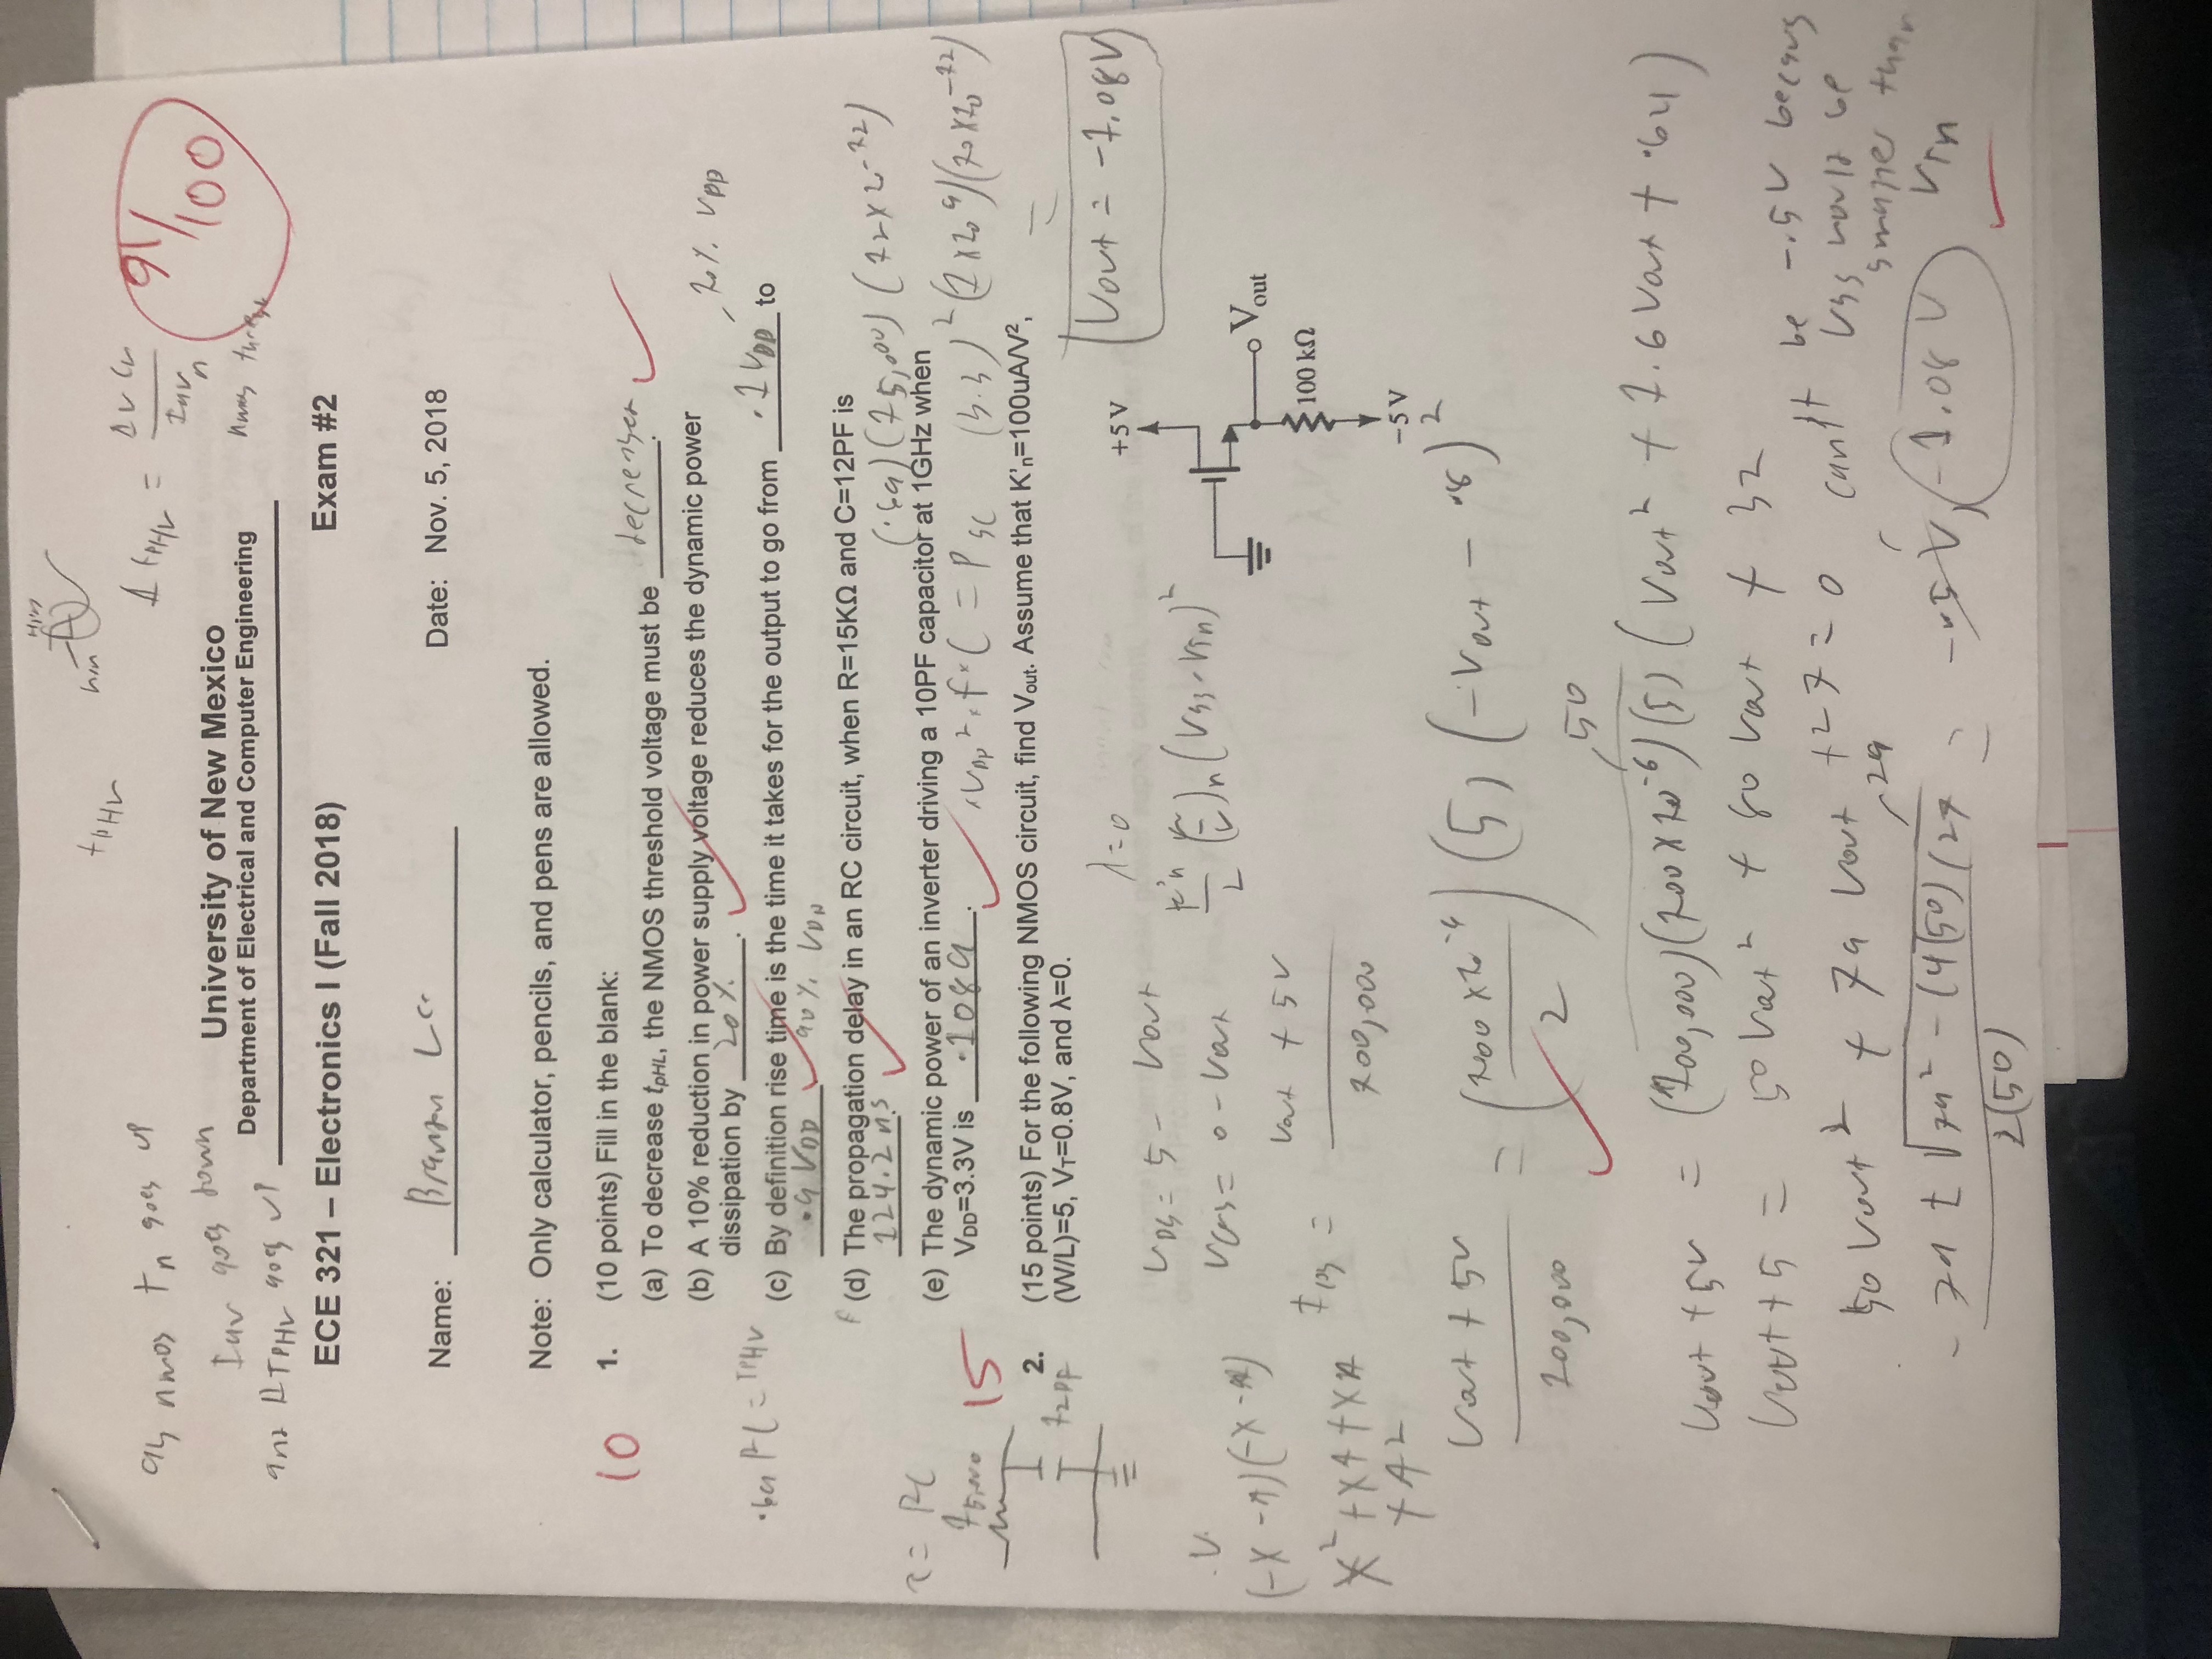 tpHL
as nmos tn goes up
Iav goes down
and ΔTPHL goes up
Δ tPHL = ΔV CL / Iav n
nmos
91/100
University of New Mexico
Department of Electrical and Computer Engineering
ECE 321 – Electronics I (Fall 2018) Exam #2
Name: Date: Nov. 5, 2018
Note: Only calculator, pencils, and pens are allowed.
10
1. (10 points) Fill in the blank:
(a) To decrease tpHL, the NMOS threshold voltage must be decreased.
(b) A 10% reduction in power supply voltage reduces the dynamic power
dissipation by 20%.
10% VDD
.69 RC = TPHL
(c) By definition rise time is the time it takes for the output to go from .1 VDD to
.9 VDD 90% VDD
(d) The propagation delay in an RC circuit, when R=15KΩ and C=12PF is
124.2 ns
(.69)(15,000)(12x10-12)
(e) The dynamic power of an inverter driving a 10PF capacitor at 1GHz when
VDD=3.3V is .1089.
VDD2 * f * C = PSC (3.3)2(1x109)(10x10-12)
τ = RC
15,000
12PF
15
2. (15 points) For the following NMOS circuit, find Vout. Assume that K'n=100uA/V2,
(W/L)=5, VT=0.8V, and λ=0.
=
Vout = -1.08V
λ=0
+5 V
VDS = 5 - Vout
VGS = 0 - Vout
K'n/2 (W/L)n (VGS - VTn)2
Vout
100 kΩ
-5 V
(-X - A)(-X - A)
X2 + XA + XA
+ A2
IDS = Vout + 5V / 100,000
Vout + 5V / 100,000 = (100 x 10-6 / 2) (5) (-Vout - .8)2
50
Vout + 5V = (100,000)(100 x 10-6)(5) (Vout2 + 1.6 Vout + .64)
Vout + 5 = 50 Vout2 + 80 Vout + 32
50 Vout2 + 79 Vout + 27 = 0
can't be -.5V because
VGS would be
smaller than
VTn
29
- 79 ± √792 - (4(50)(27 / 2(50) = -.5 V, -1.08 V